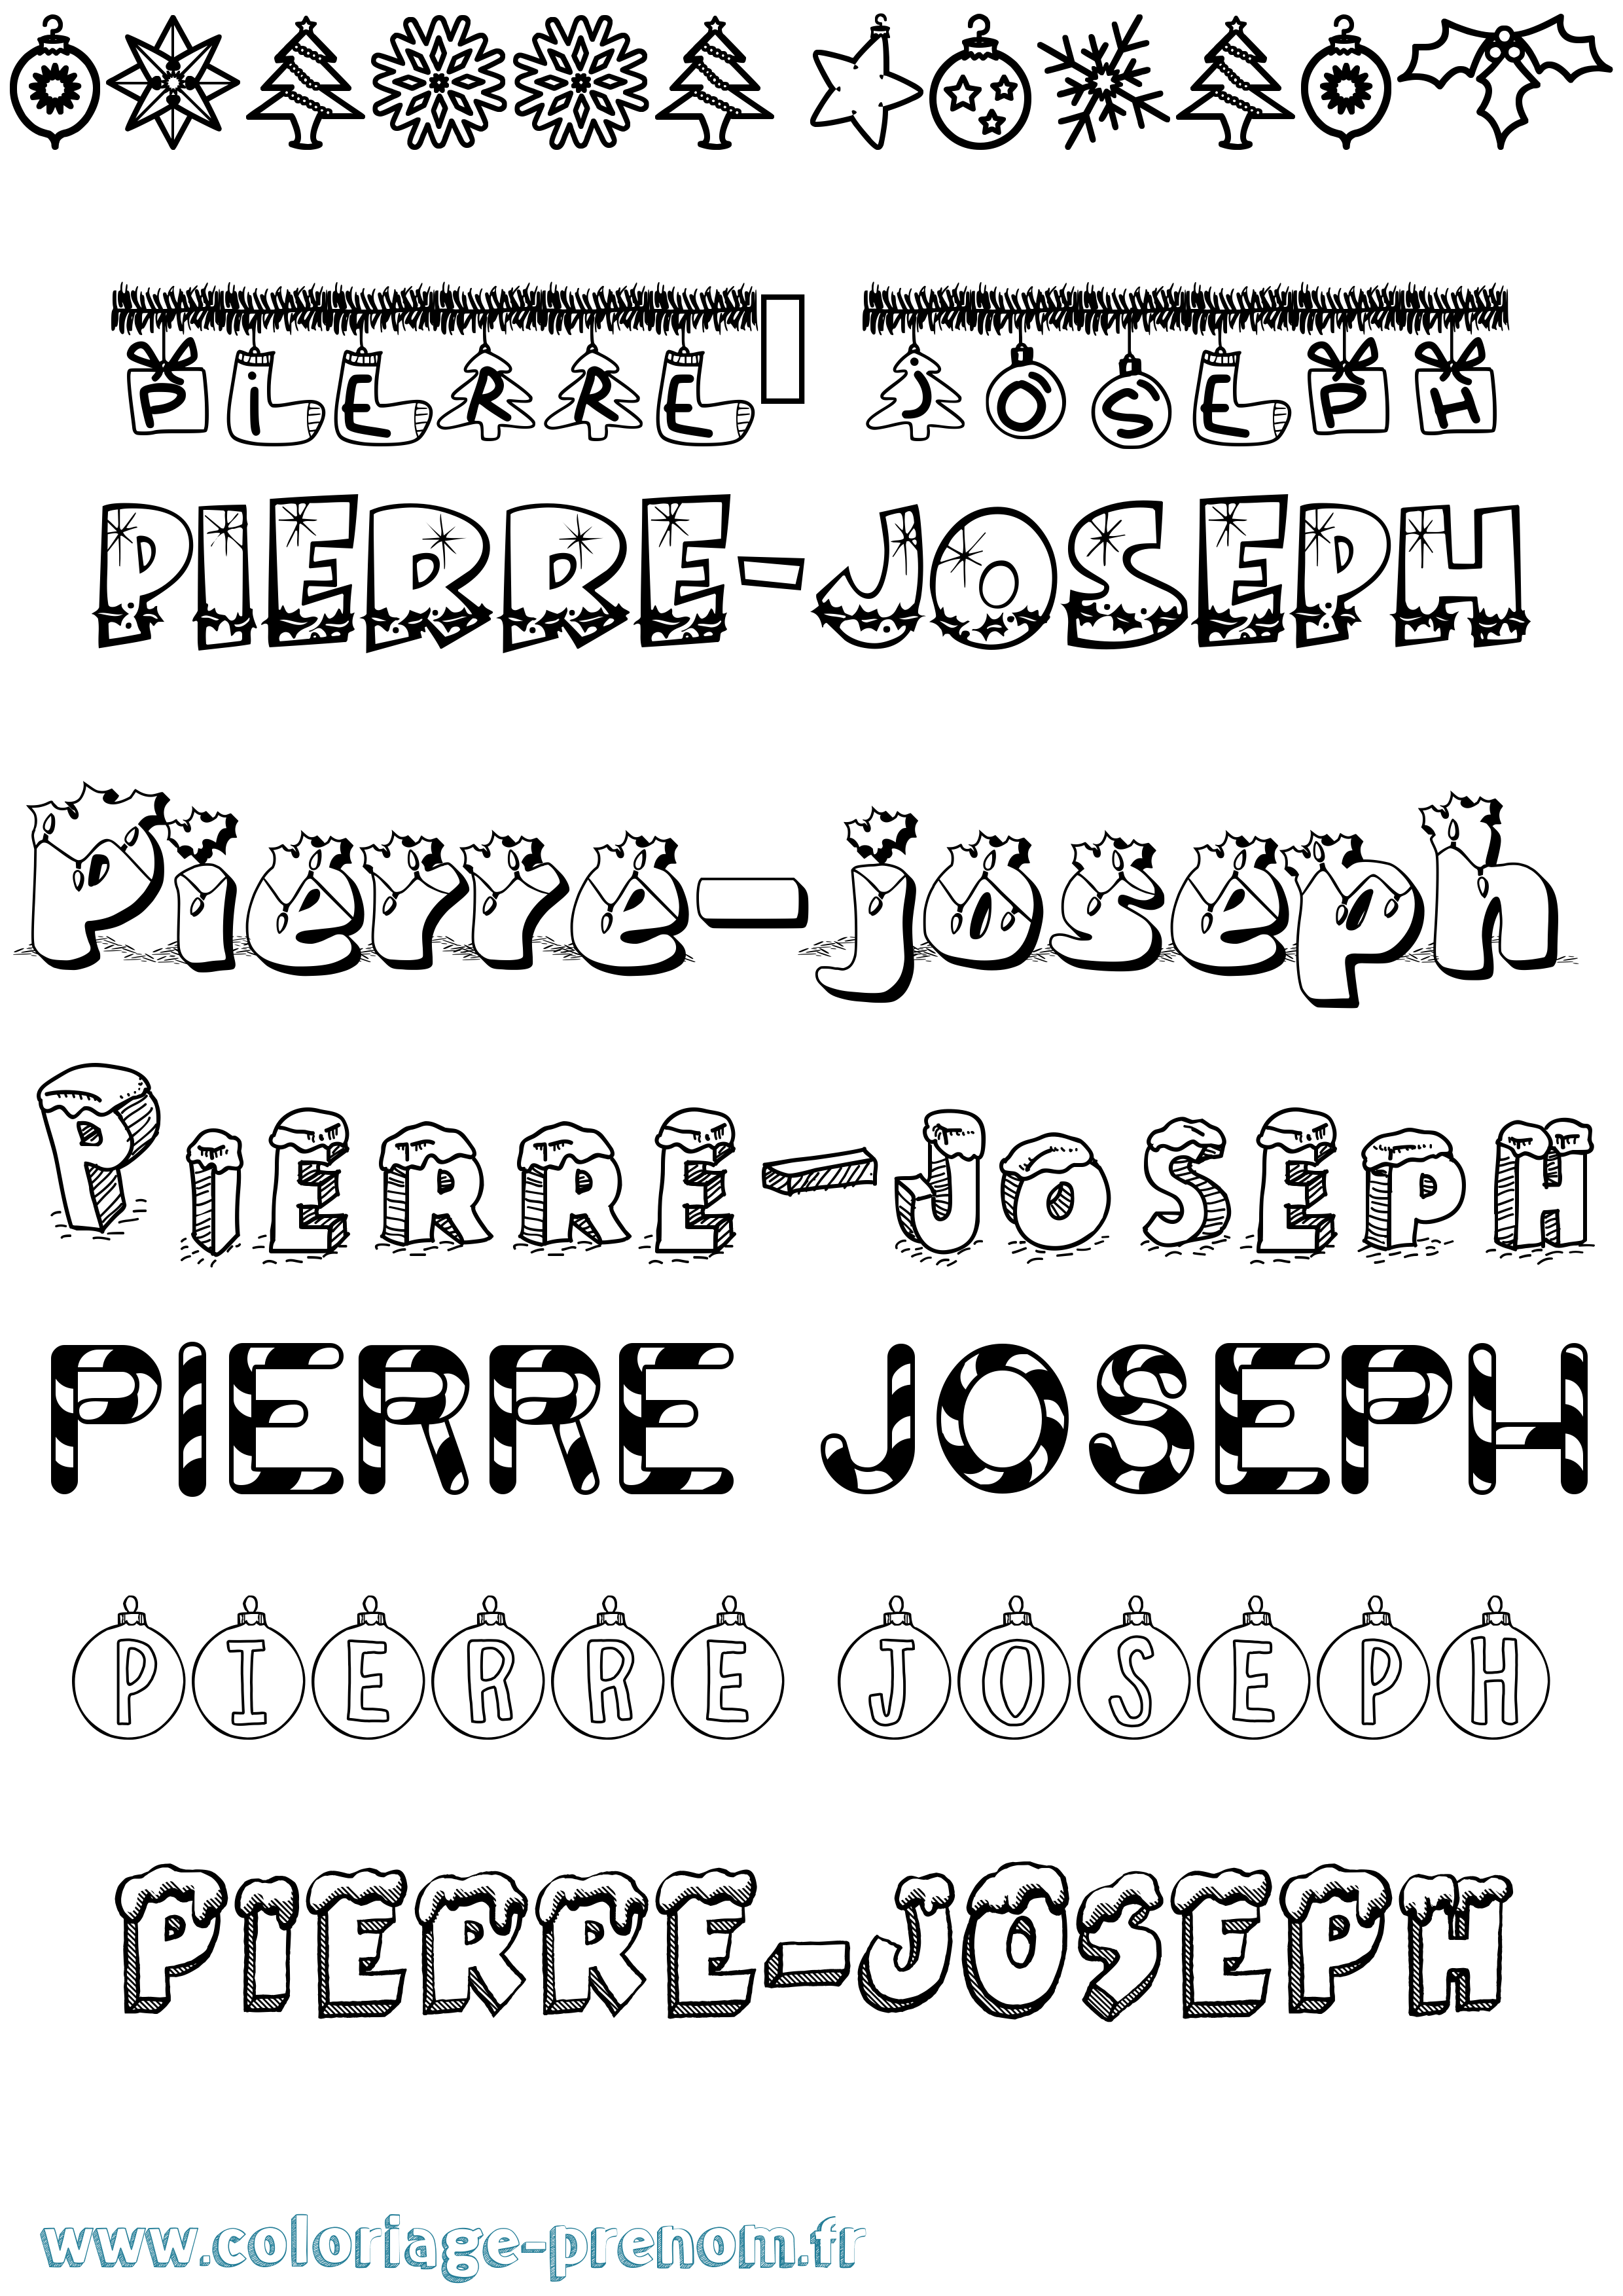 PiERRE JOSEPH
PIERRE-JOSEPH
Pierre-joseph
PIERRE-JOSEPH
PIERRE JOSEPH
PIERRE JOSEPH
PIERRE-JOSEPH
www.coloriage-prenom.fr